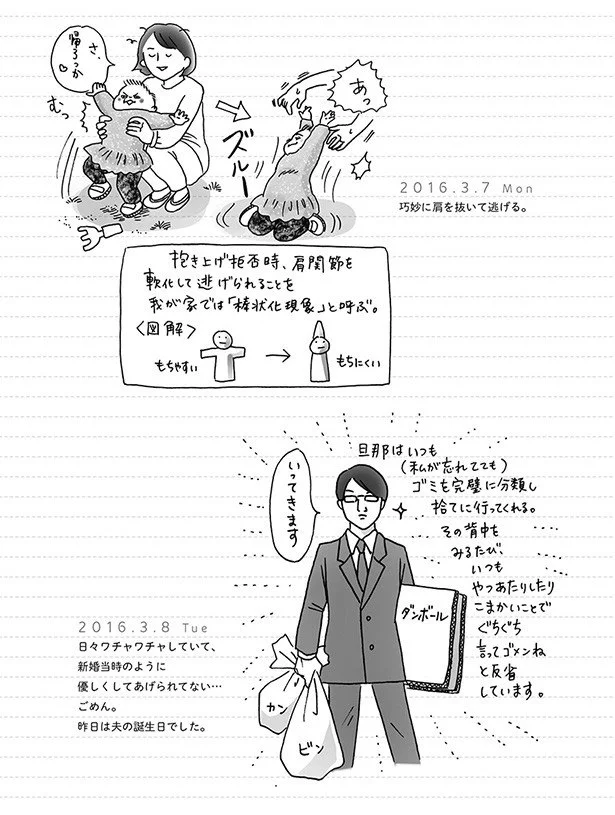 さ、
帰ろっか
むっ
ズルー
あっ
2016.3.7 Mon
巧妙に肩を抜いて逃げる。
抱き上げ拒否時、肩関節を
軟化して逃げられることを
我が家では「棒状化現象」と呼ぶ。
〈図解〉
もちやすい
もちにくい
旦那はいつも
(私が忘れてても)
ゴミを完璧に分類し
捨てに行ってくれる。
その背中を
みるたび、
いつも
やつあたりしたり
こまかいことで
ぐちぐち
言ってゴメンね
と反省
しています。
いってきます
ダンボール
カン
ビン
2016.3.8 Tue
日々ワチャワチャしていて、
新婚当時のように
優しくしてあげられてない…
ごめん。
昨日は夫の誕生日でした。